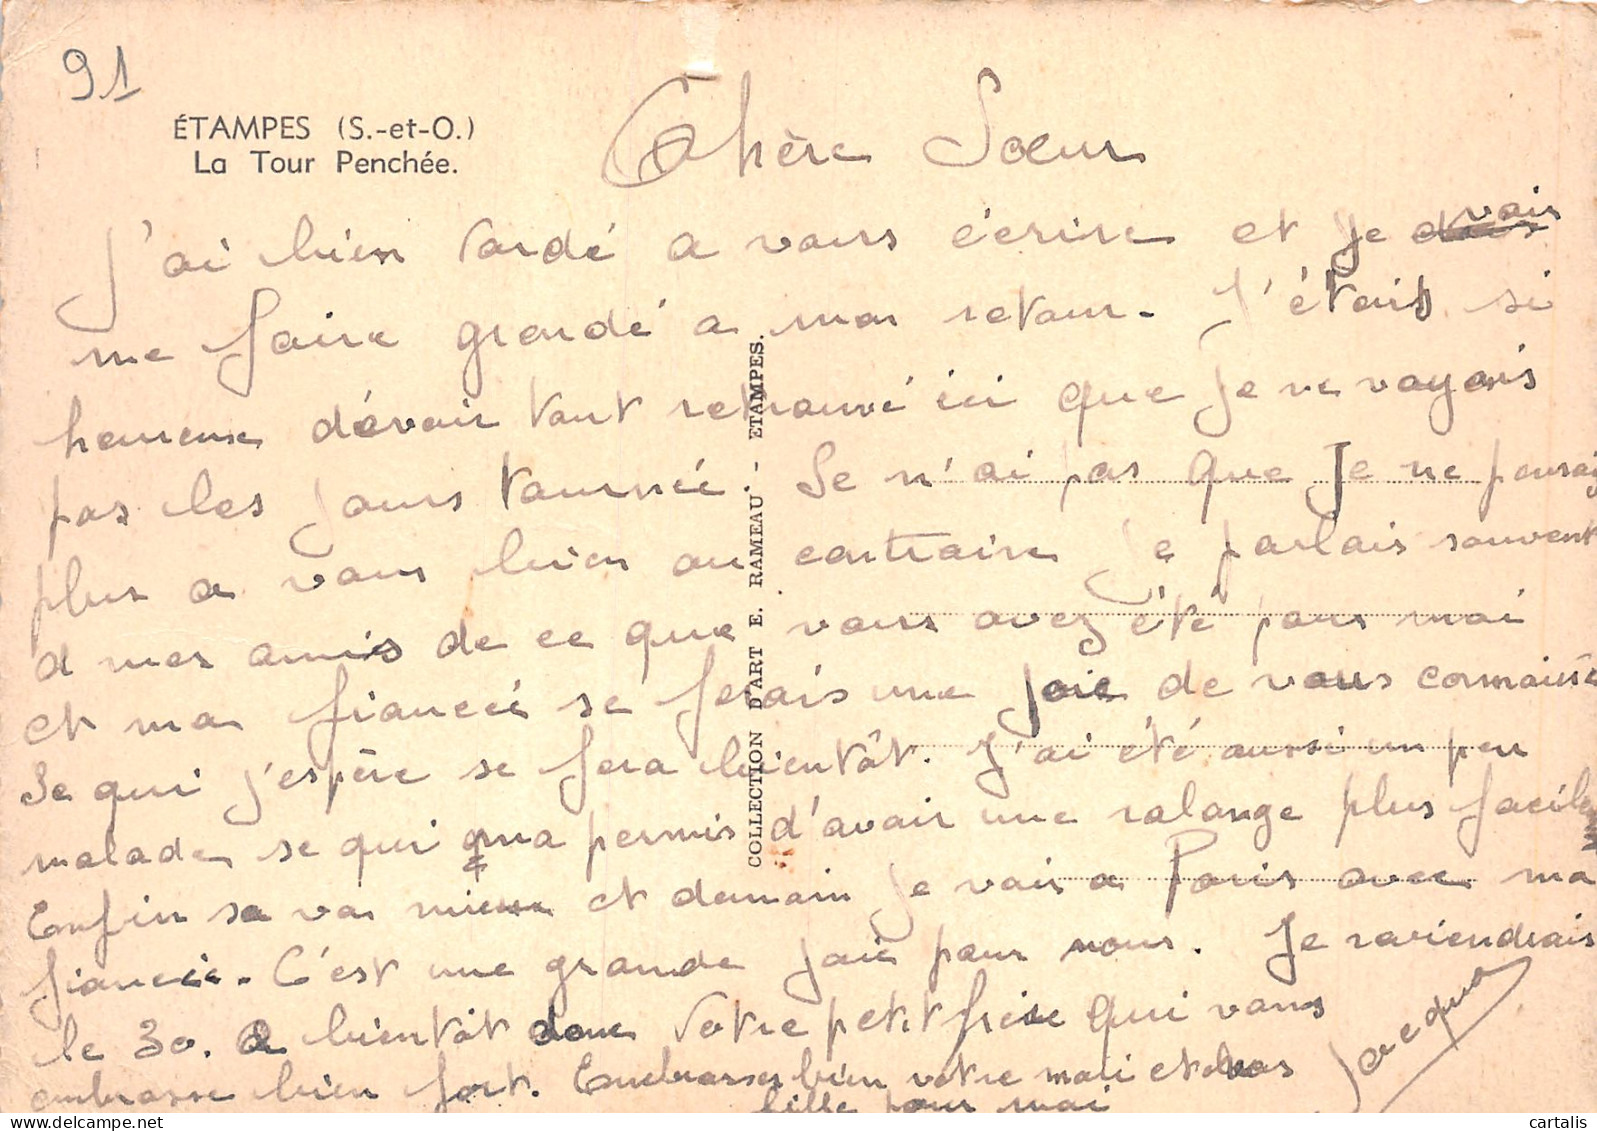 91
ÉTAMPES (S.-et-O.)
La Tour Penchée.
Chère Soeur
J'ai bien tardé a vous écrire et je vais
me faire grondé a mon retour. J'étais si
heureuse d'avoir tant retrouvé ici que je ne voyais
pas les jours tournée. Se n'ai pas que Je ne pensais
plus a vous bien au contraire je parlais souvent
a mes amis de ce que vous avez été pour moi
et ma fiancée se ferais une joie de vous connaitre
Se qui j'espère se fera bientôt. J'ai été aussi un peu
malade se qui ma permis d'avoir une ralonge plus facile
Enfin sa va mieux et demain je vais a Paris avec ma
fiancée. C'est une grande joie pour nous. Je reviendrais
le 30. A bientôt donc Votre petit frère qui vous
embrasse bien fort. Embrasser bien votre mari et vos
fille pour moi
Jacques
COLLECTION D'ART E. RAMEAU - ETAMPES.
cartalis